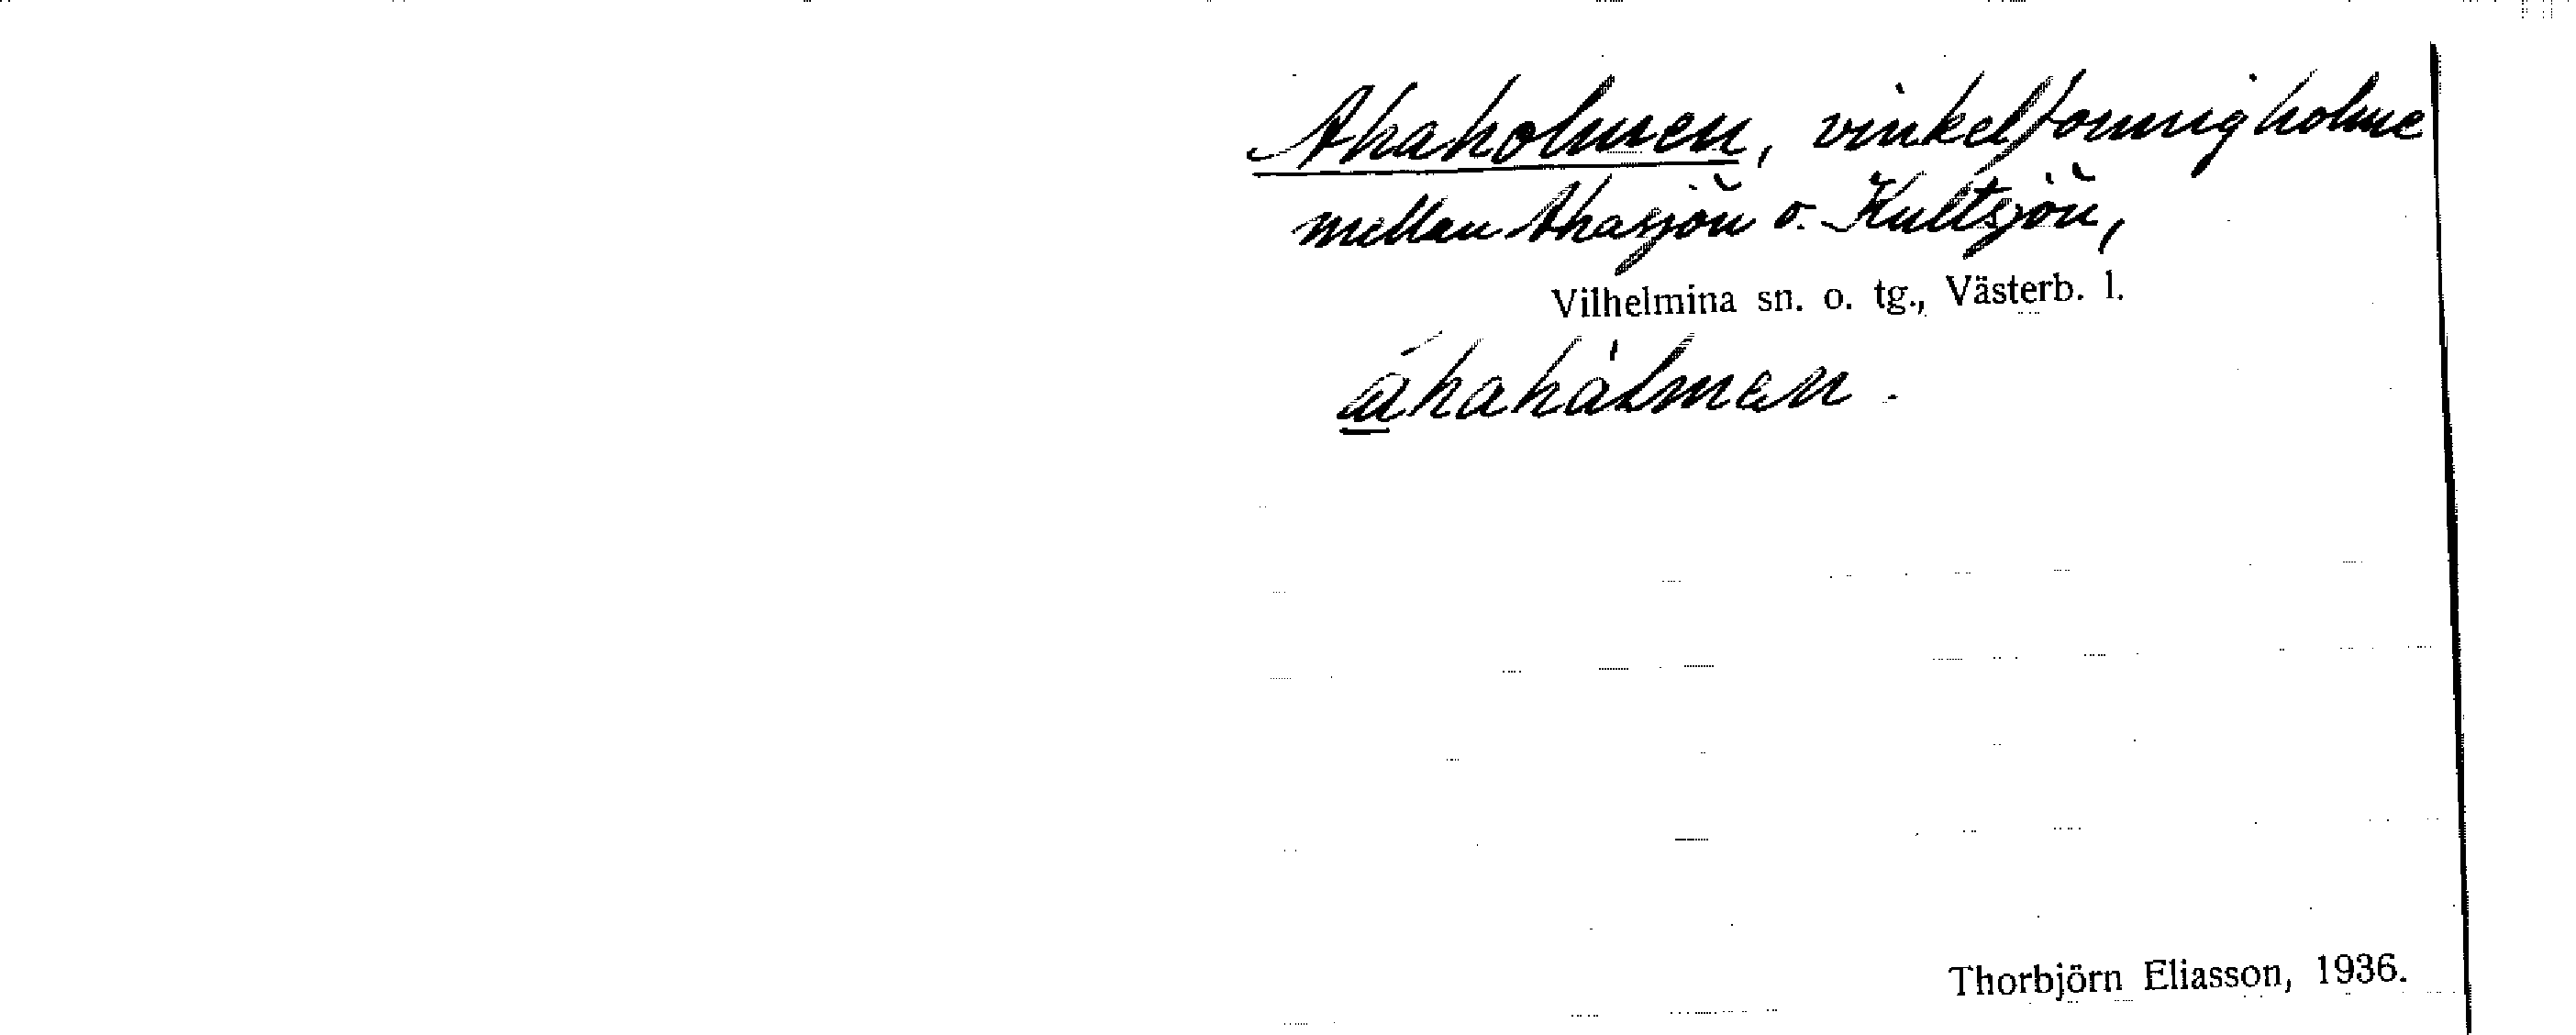 Akaholmen, vinkelformig holme
mellan Akasjön o. Kultsjön,
Vilhelmina sn. o. tg., Västerb. l.
ákahålmen.
Thorbjörn Eliasson, 1936.